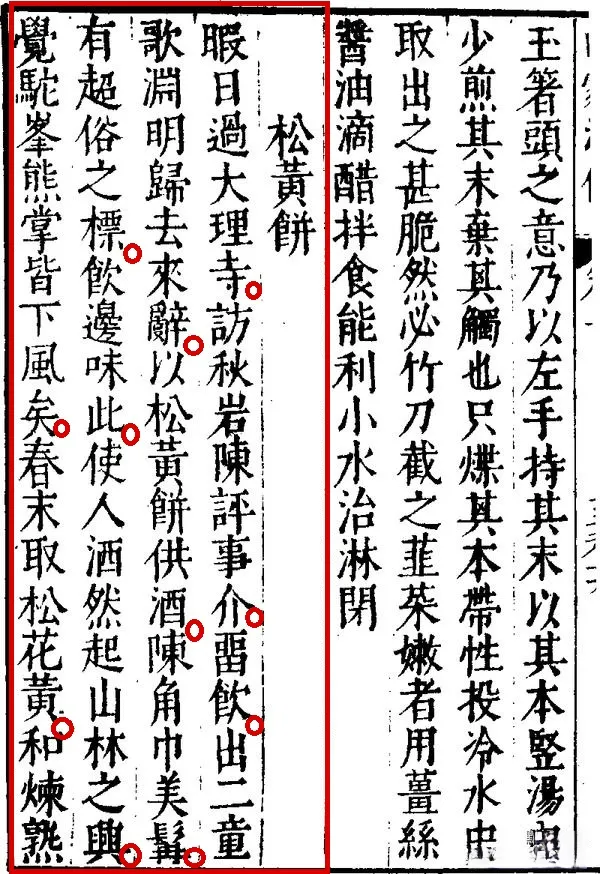 玉箸頭之意乃以左手持其末以其本豎湯中
少煎其末棄其觸也只煠其本帶性投冷水中
取出之甚脆然必竹刀截之韮菜嫩者用薑絲
醬油滴醋拌食能利小水治淋閉
松黃餅
暇日過大理寺訪秋岩陳評事介畱飲出二童
歌淵明歸去來辭以松黃餅供酒陳角巾美髯
有超俗之標飲邊味此使人洒然起山林之興
覺駝峯熊掌皆下風矣春末取松花黃和煉熟